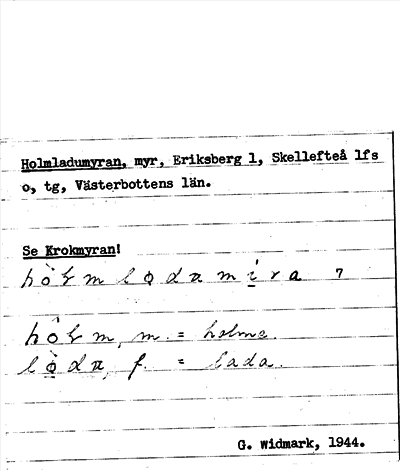 Holmladumyran, myr, Eriksberg 1, Skellefteå lfs
o, tg, Västerbottens län.
Se Krokmyran!
hòɫmlodamira 7
hôɫm, m. = holme.
lòda, f. = lada.
G. Widmark, 1944.